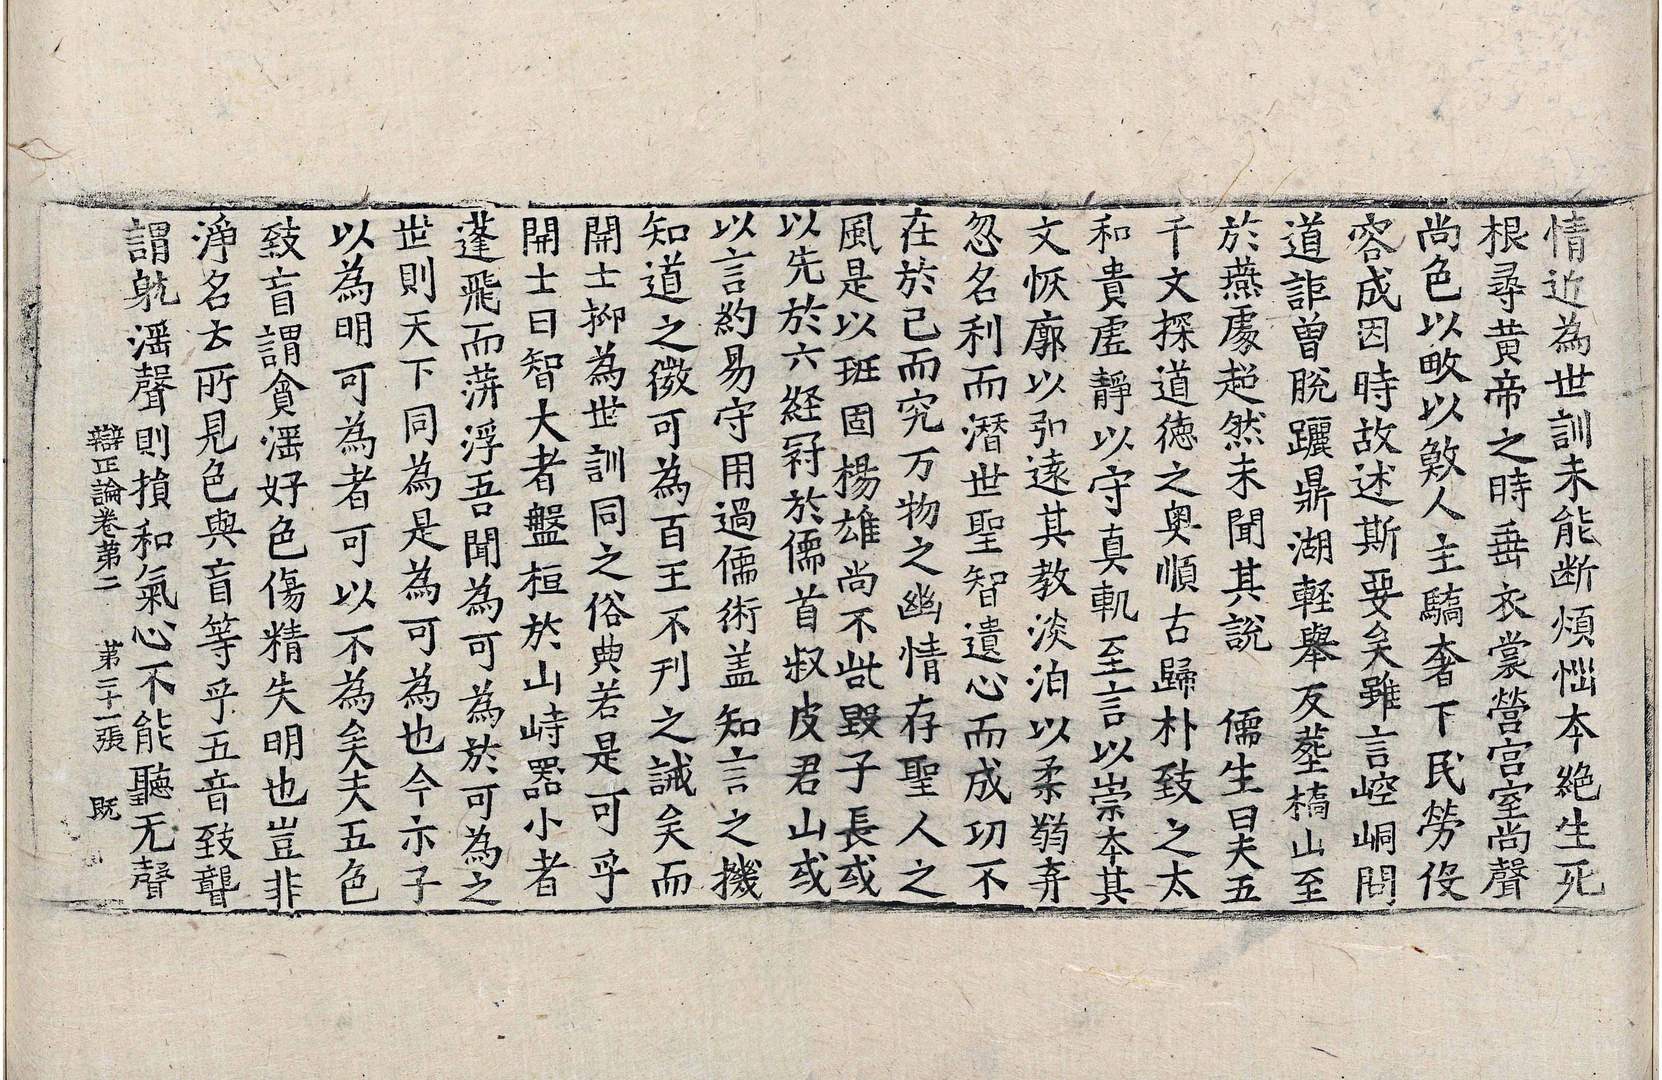 情近為世訓未能断煩惱本絶生死
根尋黄帝之時垂衣裳營宮室尚聲
尚色以畋以敫人主驕奢下民勞役
容成因時故述斯要矣雖言崆峒問
道詎曾脫躧鼎湖軽舉反葬橋山至
於燕處超然未聞其説　儒生曰夫五
千文探道徳之奥順古歸朴致之太
和貴虛靜以守真軌至言以崇本其
文恢廓以弘遠其教淡泊以柔弱弃
忽名利而潛世聖智遺心而成功不
在於己而究万物之幽情存聖人之
風是以班固楊雄尚不呰毀子長或
以先於六経冠於儒首叔皮君山或
以言約易守用過儒術盖知言之機
知道之徴可為百王不刊之誡矣而
開士抑為世訓同之俗典若是可乎
開士曰智大者盤桓於山峙器小者
蓬飛而蓱浮吾聞為可為於可為之
世則天下同為是為可為也今亦子
以為明可為者可以不為矣夫五色
致盲謂貪滛好色傷精失明也豈非
淨名云所見色與盲等乎五音致聾
謂躭滛聲則損和氣心不能聽无聲
辯正論卷苐二　苐三十一張　既